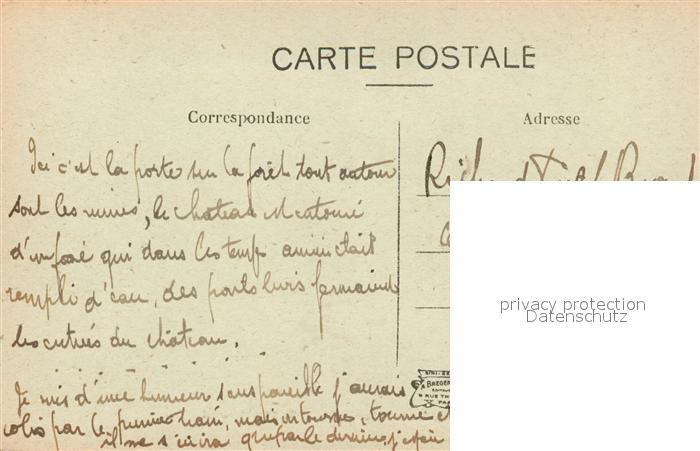 CARTE POSTALE
Correspondance
Adresse
Ici c'est la porte sur la forêt tout autour
sont les ruines, le château est entouré
d'un fossé qui dans les temps anciens était
rempli d'eau, des ponts levis fermaient
les entrées du château.
Je suis d'une humeur sans pareille j'aurais
colis par le premier train, mais
il ne que par le dernier, j'espère
privacy protection
Datenschutz
BREGER
9 RUE TH
PA